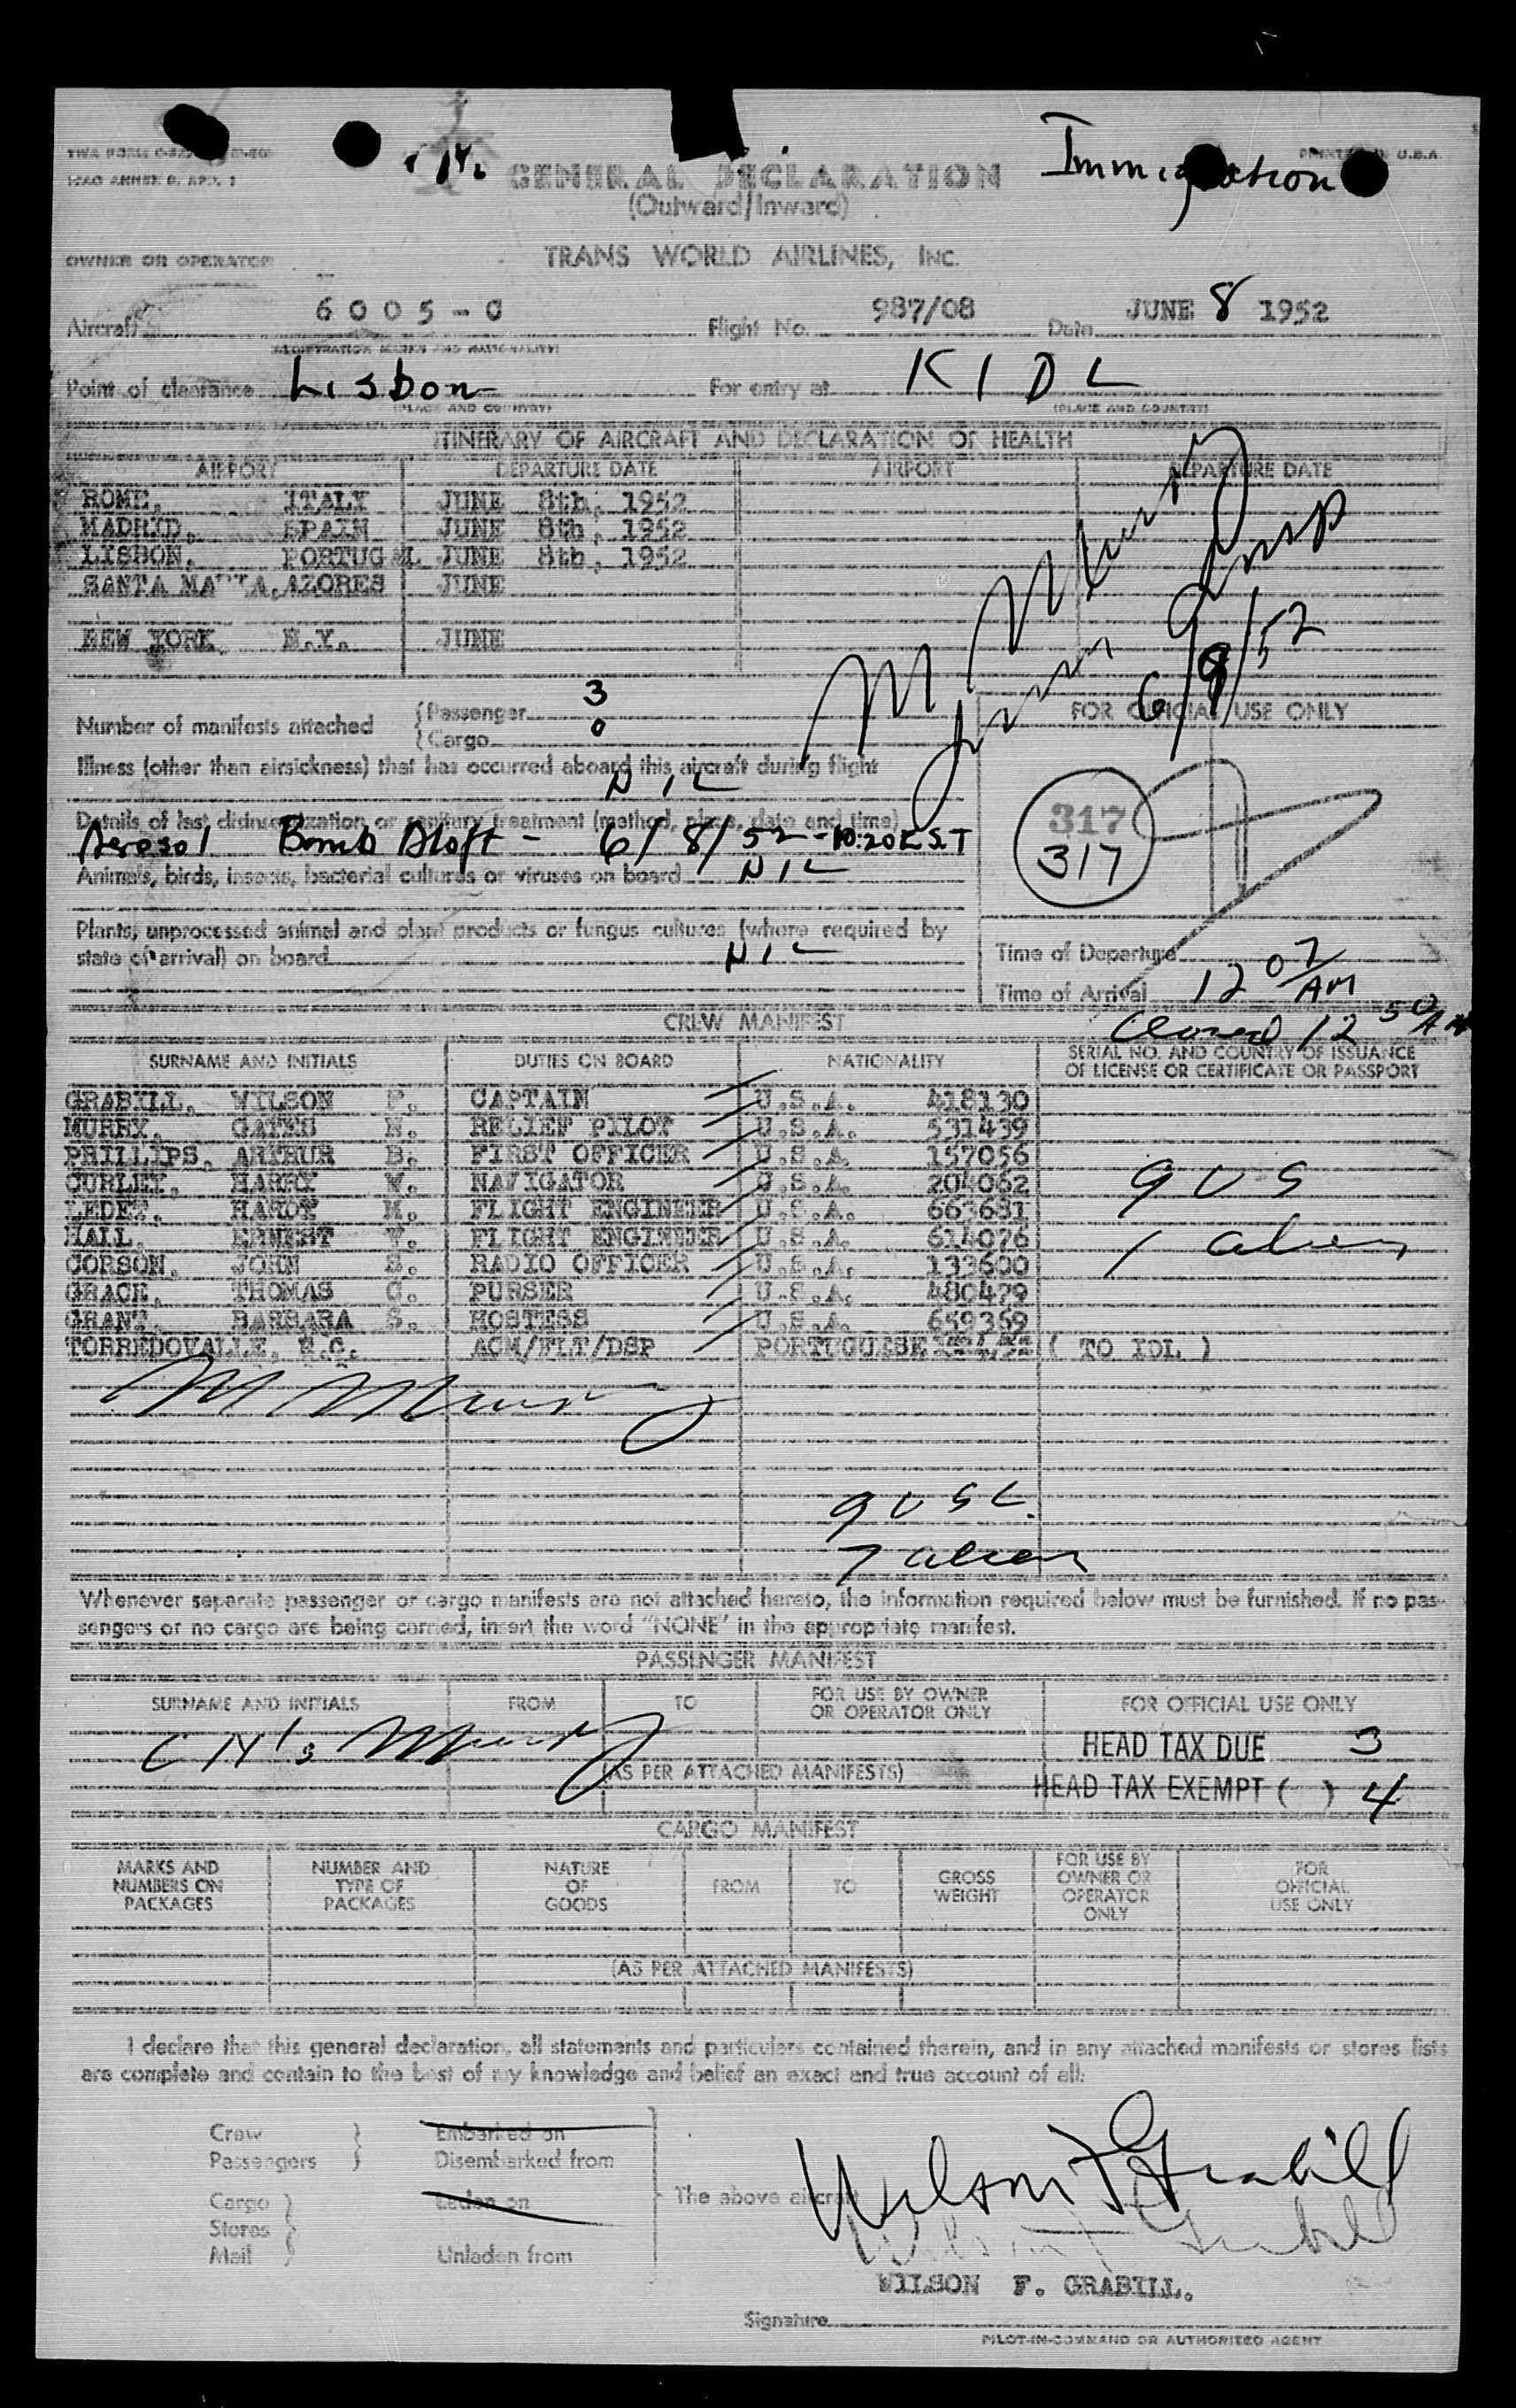 PRINTED IN U.S.A.
ICAO ANNEX 9, APP. 1
Immigration
GENERAL DECLARATION
(Outward/Inward)
OWNER OR OPERATOR
TRANS WORLD AIRLINES, INC.
Aircraft 6005-C Flight No. 987/08 Date JUNE 8 1952
(REGISTRATION MARKS AND NATIONALITY)
Point of clearance Lisbon For entry at KIDL
(PLACE AND COUNTRY) (PLACE AND COUNTRY)
ITINERARY OF AIRCRAFT AND DECLARATION OF HEALTH
AIRPORT DEPARTURE DATE AIRPORT DEPARTURE DATE
ROME, ITALY JUNE 8th, 1952
MADRID, SPAIN JUNE 8th, 1952
LISBON, PORTUGAL JUNE 8th, 1952
SANTA MARIA, AZORES JUNE
NEW YORK N.Y. JUNE
6/9/52
Number of manifests attached {Passenger 3
{Cargo 0
FOR OFFICIAL USE ONLY
Illness (other than airsickness) that has occurred aboard this aircraft during flight
NIL
Details of last disinsectization or sanitary treatment (method, place, date and time)
Aerosol Bomb Aloft - 6/8/52 - 10:20 E.S.T
317
317
Animals, birds, insects, bacterial cultures or viruses on board NIL
Plants, unprocessed animal and plant products or fungus cultures (where required by
state of arrival) on board NIL
Time of Departure
Time of Arrival 12 07 AM
Cleared 12 50 AM
CREW MANIFEST
SURNAME AND INITIALS DUTIES ON BOARD NATIONALITY SERIAL NO. AND COUNTRY OF ISSUANCE
OF LICENSE OR CERTIFICATE OR PASSPORT
GRABILL, WILSON F. CAPTAIN U.S.A. 418130
MURRY, GATES H. RELIEF PILOT U.S.A. 531439
PHILLIPS, ARTHUR B. FIRST OFFICER U.S.A. 157056
CURLEY, HARRY W. NAVIGATOR U.S.A. 204062
LEDET, HARDY M. FLIGHT ENGINEER U.S.A. 663681
HALL, ERNEST V. FLIGHT ENGINEER U.S.A. 614076
CORSON, JOHN S. RADIO OFFICER U.S.A. 133600
GRACE, THOMAS C. PURSER U.S.A. 480479
GRANT, BARBARA S. HOSTESS U.S.A. 659369
TORREDOVALLE, H.C. ACM/FLT/DSP PORTUGUESE ( TO IDL )
9 US
1 alien
9 USC.
7 alien
Whenever separate passenger or cargo manifests are not attached hereto, the information required below must be furnished. If no pas-
sengers or no cargo are being carried, insert the word "NONE" in the appropriate manifest.
PASSENGER MANIFEST
SURNAME AND INITIALS FROM TO FOR USE BY OWNER
OR OPERATOR ONLY FOR OFFICIAL USE ONLY
HEAD TAX DUE 3
(AS PER ATTACHED MANIFESTS)
HEAD TAX EXEMPT ( ) 4
CARGO MANIFEST
MARKS AND
NUMBERS ON
PACKAGES
NUMBER AND
TYPE OF
PACKAGES
NATURE
OF
GOODS
FROM
TO
GROSS
WEIGHT
FOR USE BY
OWNER OR
OPERATOR
ONLY
FOR
OFFICIAL
USE ONLY
(AS PER ATTACHED MANIFESTS)
I declare that this general declaration, all statements and particulars contained therein, and in any attached manifests or stores lists
are complete and contain to the best of my knowledge and belief an exact and true account of all:
Crew } Embarked on
Passengers } Disembarked from
Cargo } Laden on
Stores }
Mail } Unladen from
The above aircraft
Wilson F Grabill
Wilson F Grabill
WILSON F. GRABILL.
Signature
PILOT-IN-COMMAND OR AUTHORIZED AGENT